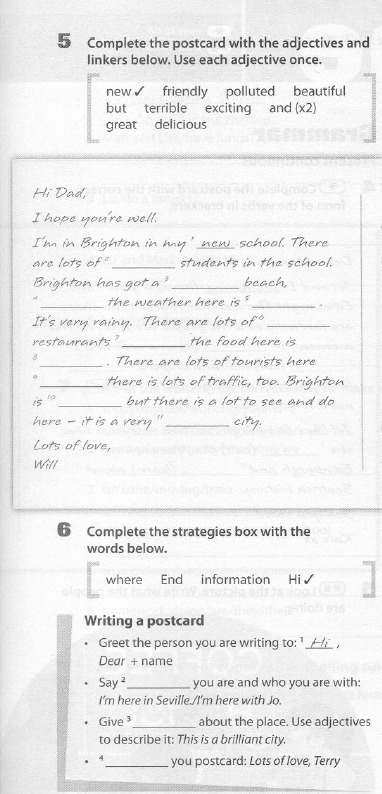 5 Complete the postcard with the adjectives and
linkers below. Use each adjective once.
new ✓ friendly polluted beautiful
but terrible exciting and (x2)
great delicious
Hi Dad,
I hope you're well.
I'm in Brighton in my ¹ new school. There
are lots of ² ________ students in the school.
Brighton has got a ³ ________ beach,
⁴ ________ the weather here is ⁵ ________ .
It's very rainy. There are lots of ⁶ ________
restaurants ⁷ ________ the food here is
⁸ ________ . There are lots of tourists here
⁹ ________ there is lots of traffic, too. Brighton
is ¹⁰ ________ but there is a lot to see and do
here – it is a very ¹¹ ________ city.
Lots of love,
Will
6 Complete the strategies box with the
words below.
where End information Hi ✓
Writing a postcard
• Greet the person you are writing to: ¹ Hi ,
Dear + name
• Say ² ________ you are and who you are with:
I'm here in Seville./I'm here with Jo.
• Give ³ ________ about the place. Use adjectives
to describe it: This is a brilliant city.
• ⁴ ________ you postcard: Lots of love, Terry